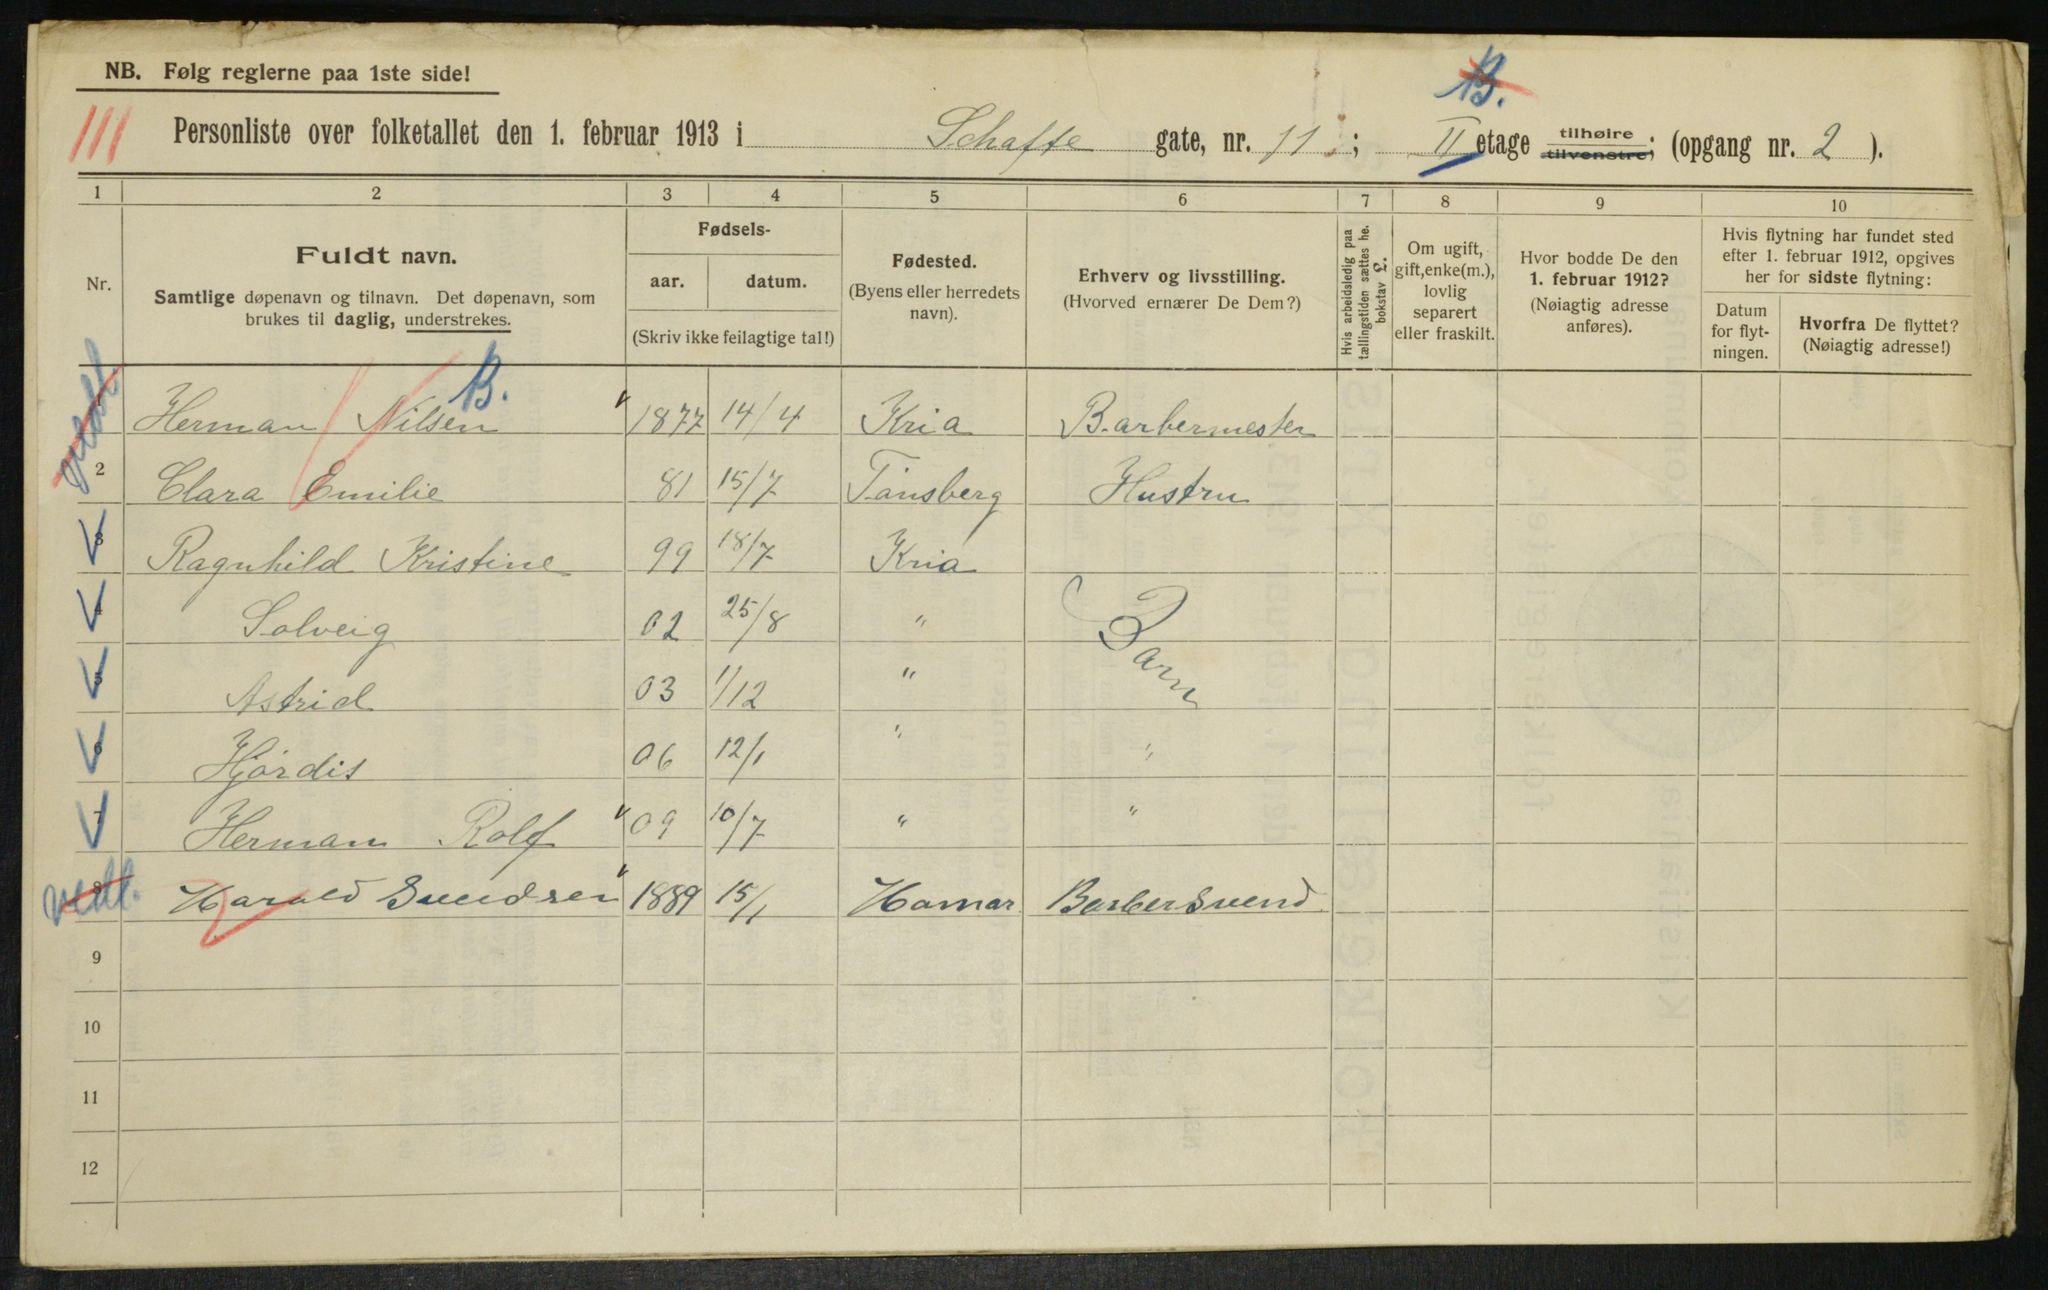 NB. Følg reglerne paa 1ste side!
B.
III Personliste over folketallet den 1. februar 1913 i Schafte gate, nr. 11 ; II etage tilhøire tilvenstre; (opgang nr. 2 ).
1 2 3 4 5 6 7 8 9 10
Nr.
Fuldt navn.
Samtlige døpenavn og tilnavn. Det døpenavn, som
brukes til daglig, understrekes.
Fødsels-
aar. datum.
(Skriv ikke feilagtige tal!)
Fødested.
(Byens eller herredets
navn).
Erhverv og livsstilling.
(Hvorved ernærer De Dem?)
Hvis arbeidsledig paa
tællingstiden sættes he.
bokstav L.
Om ugift,
gift, enke(m.),
lovlig
separert
eller fraskilt.
Hvor bodde De den
1. februar 1912?
(Nøiagtig adresse
anføres).
Hvis flytning har fundet sted
efter 1. februar 1912, opgives
her for sidste flytning:
Datum
for flyt-
ningen.
Hvorfra De flyttet?
(Nøiagtig adresse!)
B.
1 Herman Nilsen 1877 14/4 Kria Barbermester
2 Clara Emilie 81 15/7 Tønsberg Hustru
3 Ragnhild Kristine 99 18/7 Kria
4 Solveig 02 25/8 " Barn
5 Astrid 03 1/12 "
6 Hjørdis 06 12/1 " "
7 Herman Rolf 09 10/7 " "
8 Harald Svendsen 1889 15/1 Hamar Barbersvend
9
10
11
12